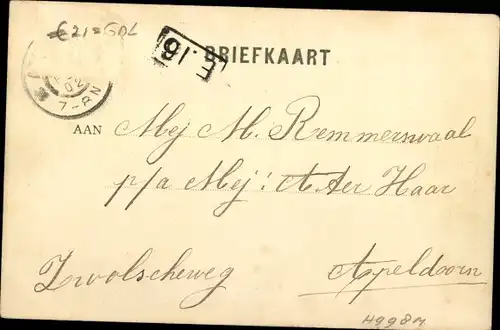 € 21= GDL
F. 18
BRIEFKAART
7-8N
AAN Mej M. Remmerswaal
p/a Mej: A. Ter Haar
Zwolscheweg Apeldoorn
4998M